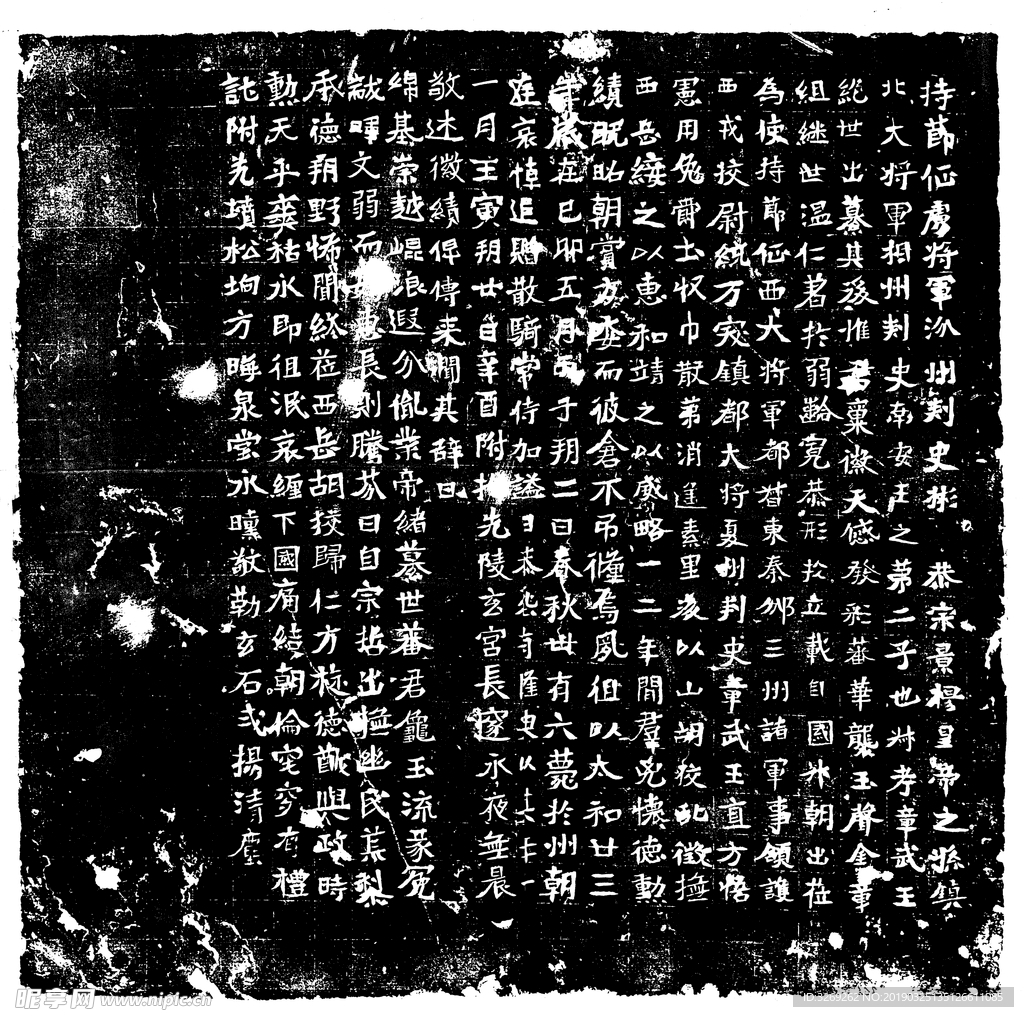 持節征虜將軍汾州刺史彬恭宗景穆皇帝之孫鎮
北大將軍相州刺史南安王之第二子也叔考章武王
絕世出纂其後惟君稟徽天感發彩蕃華襲玉聲金章
組繼世温仁著於弱齡寬恭形於立載自國升朝出莅
為使持節征西大將軍都督東秦邠三州諸軍事領護
西戎校尉統万突鎮都大將夏州刺史章武王直方悟
憲用勉爵土收巾散第消遥素里後以山胡狡亂徵撫
西岳綏之以惠和靖之以威略一二年間群兇懷德勳
績既昭朝賞方委而彼倉不弔殲焉夙徂以太和廿三
年歲在己卯五月丙子朔二日春秋卅有六薨於州朝
廷哀悼追贈散騎常侍加謚曰恭
一月壬寅朔廿日辛酉附於先陵玄宮長邃永夜無晨
敬述徽績俾傳来聞其辭曰
綿基崇越崐浪遐分胤業帝緒纂世蕃君龜玉流篆冕
黻暉文弱而惠長則騰芬曰自宗哲出撫幽民其梨
承德朔野怖聞終莅西岳胡狡歸仁方穆德猷與政時
勳天乎奚枯永即徂泯哀纏下國痛繞朝倫窀穸有禮
託附先墳松埛方晦泉堂永曛敬勒玄石式揚清塵
昵享网 www.nipic.cn
ID:3269262 NO:20190325135126611035